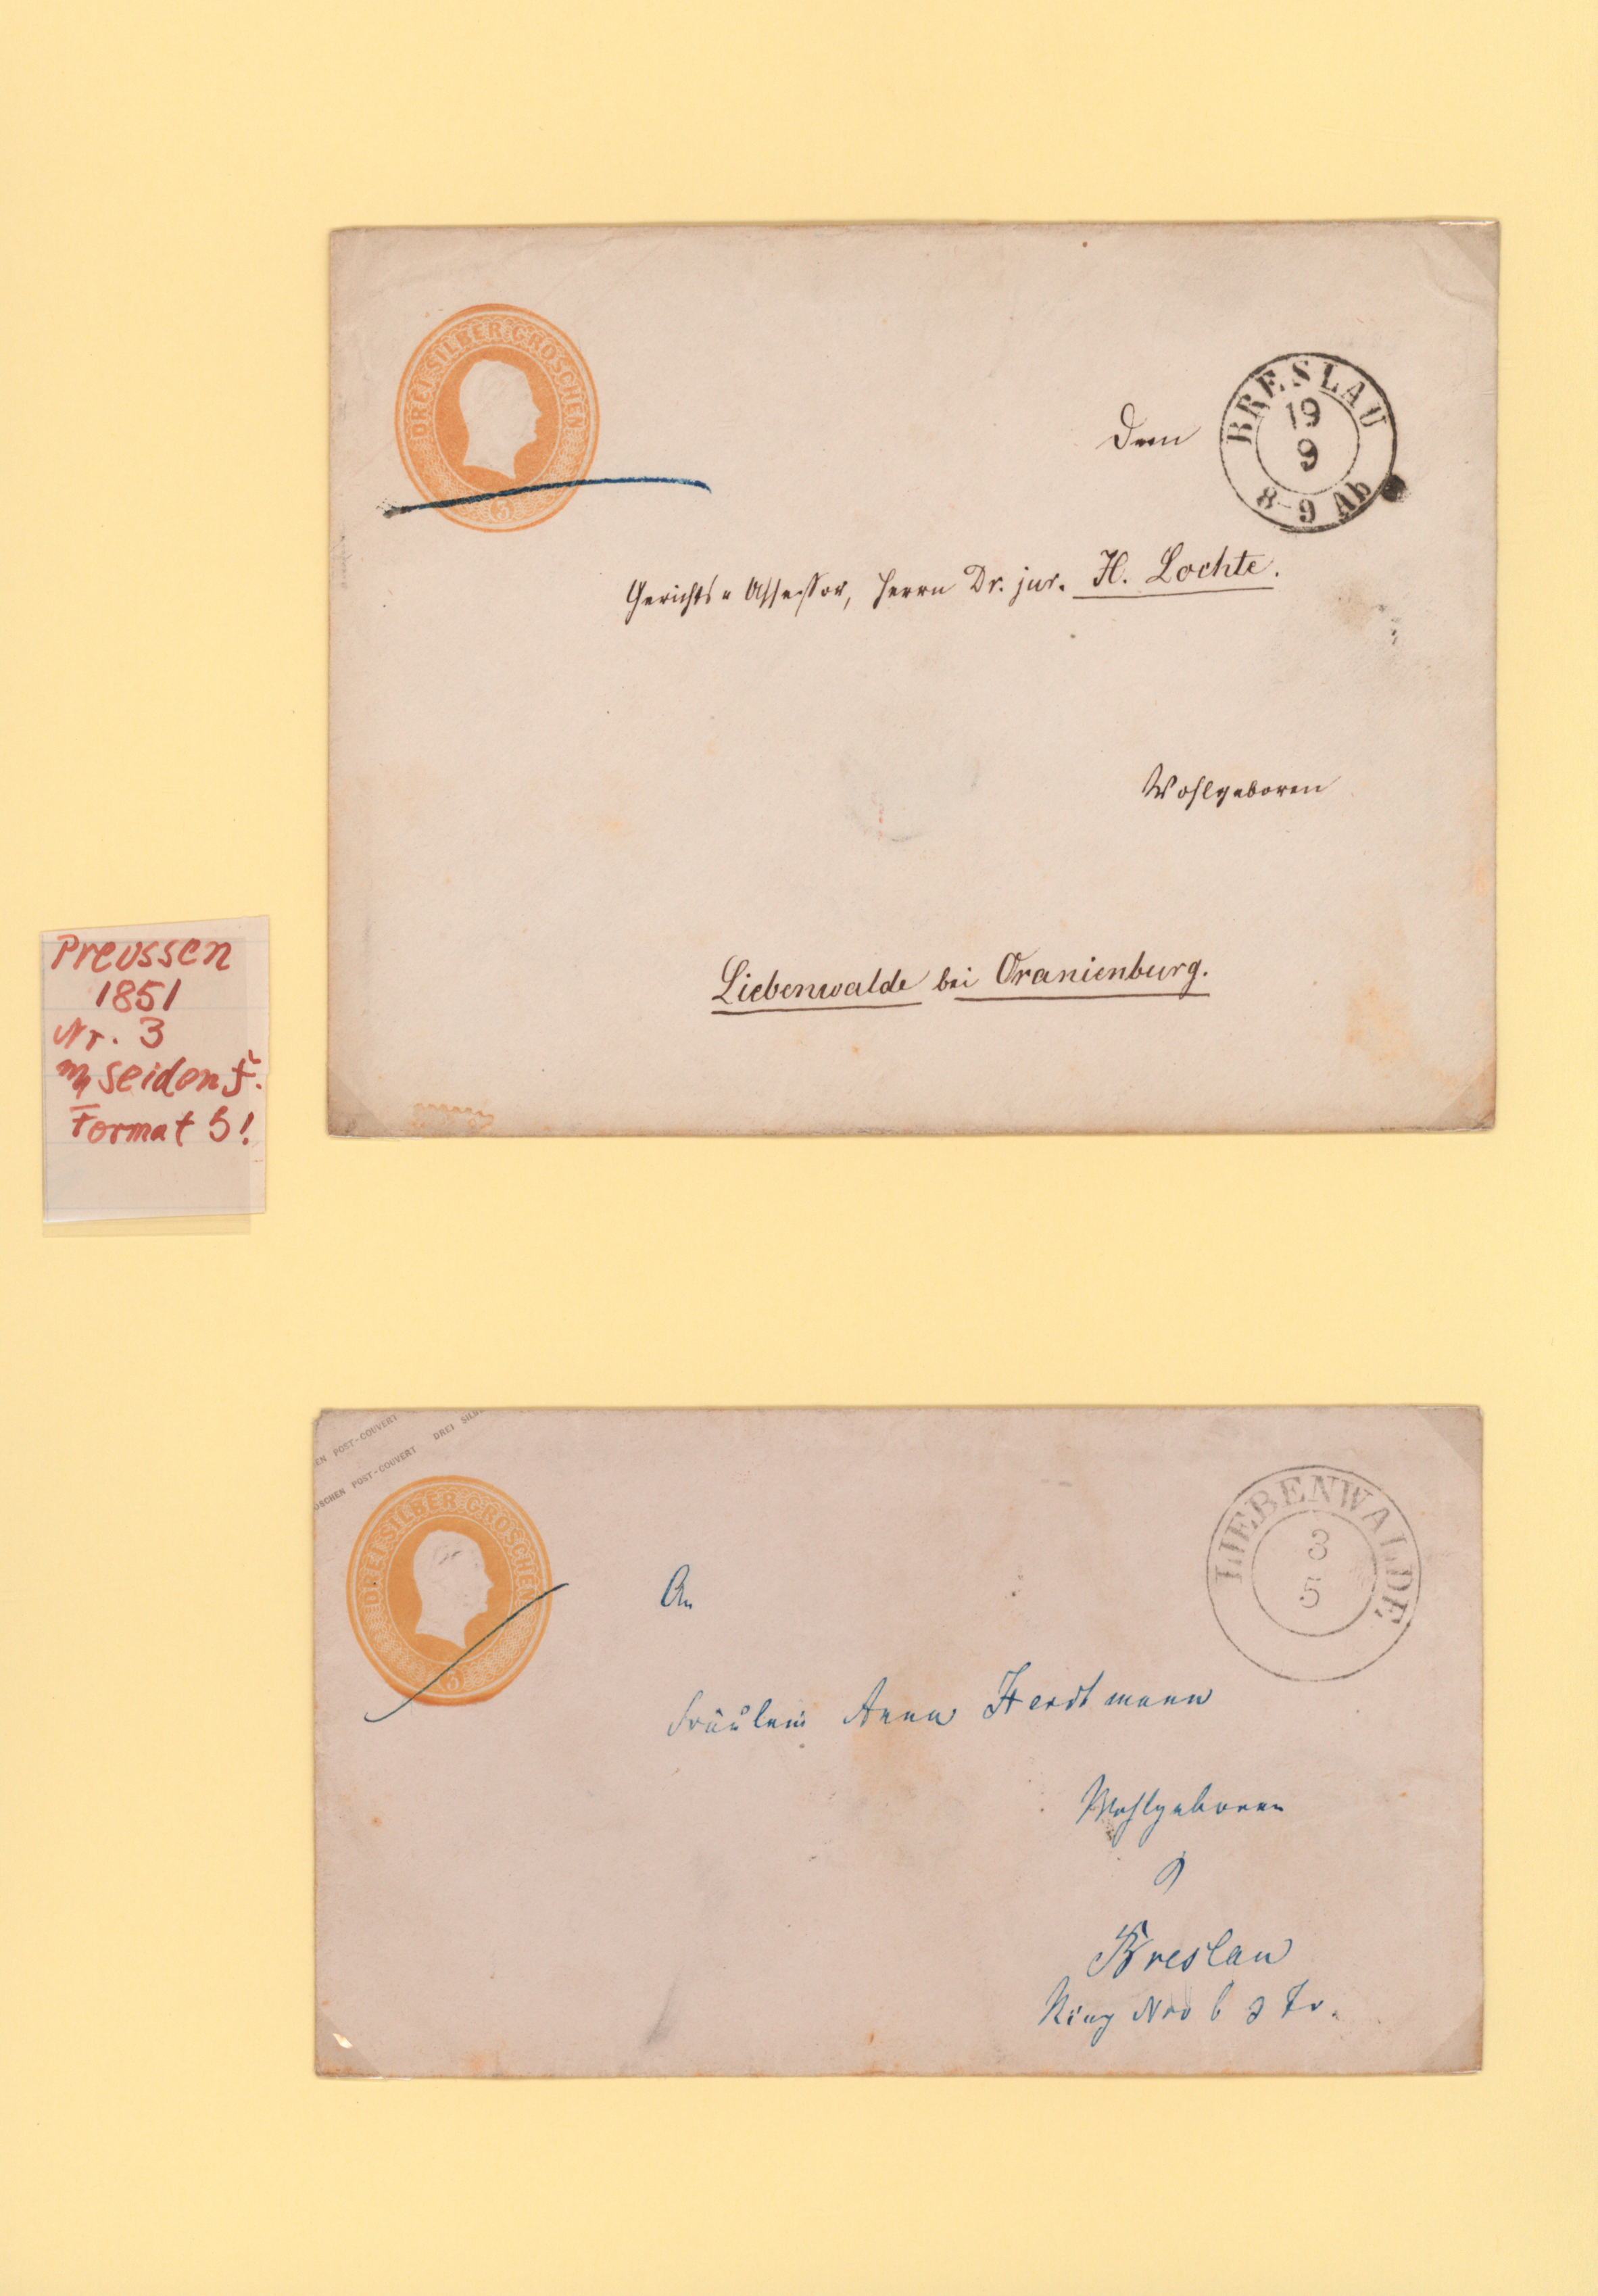 DREI SILBER GROSCHEN
3
Dem
BRESLAU
19
9
8-9 Ab
Gerichts=Assessor, Herrn Dr. jur. H. Lochte.
Wohlgeboren
Liebenwalde bei Oranienburg.
Preussen
1851
Nr. 3
m Seidenf.
Format B!
EN POST-COUVERT DREI SILB
OSCHEN POST-COUVERT
DREI SILBER GROSCHEN
3
LIEBENWALDE
3
5
An
Fräulein Anna
Wohlgeboren
Breslau
Ring Nro 6